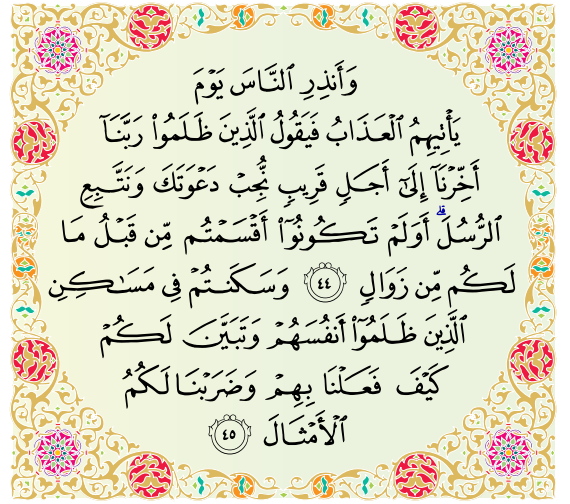 وَأَنذِرِ ٱلنَّاسَ يَوْمَ
يَأْتِيهِمُ ٱلْعَذَابُ فَيَقُولُ ٱلَّذِينَ ظَلَمُوا۟ رَبَّنَآ
أَخِّرْنَآ إِلَىٰٓ أَجَلٍ قَرِيبٍ نُّجِبْ دَعْوَتَكَ وَنَتَّبِعِ
ٱلرُّسُلَ ۗ أَوَلَمْ تَكُونُوٓا۟ أَقْسَمْتُم مِّن قَبْلُ مَا
لَكُم مِّن زَوَالٍ ٤٤ وَسَكَنتُمْ فِى مَسَـٰكِنِ
ٱلَّذِينَ ظَلَمُوٓا۟ أَنفُسَهُمْ وَتَبَيَّنَ لَكُمْ
كَيْفَ فَعَلْنَا بِهِمْ وَضَرَبْنَا لَكُمُ
ٱلْأَمْثَالَ ٤٥